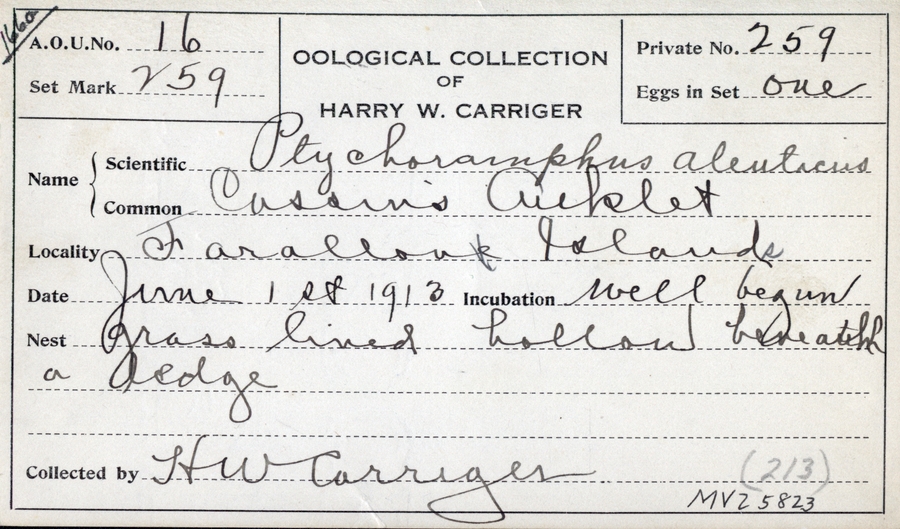 166a
A.O.U.No. 16
Set Mark 259
OOLOGICAL COLLECTION
OF
HARRY W. CARRIGER
Private No. 259
Eggs in Set one
Name Scientific Ptychoramphus aleuticus
Common Cassin's Auklet
Locality Farallone Islands
Date June 1st 1913 Incubation well begun
Nest grass lined hollow beneath
a ledge
Collected by HW Carriger
(213)
MVZ 5823